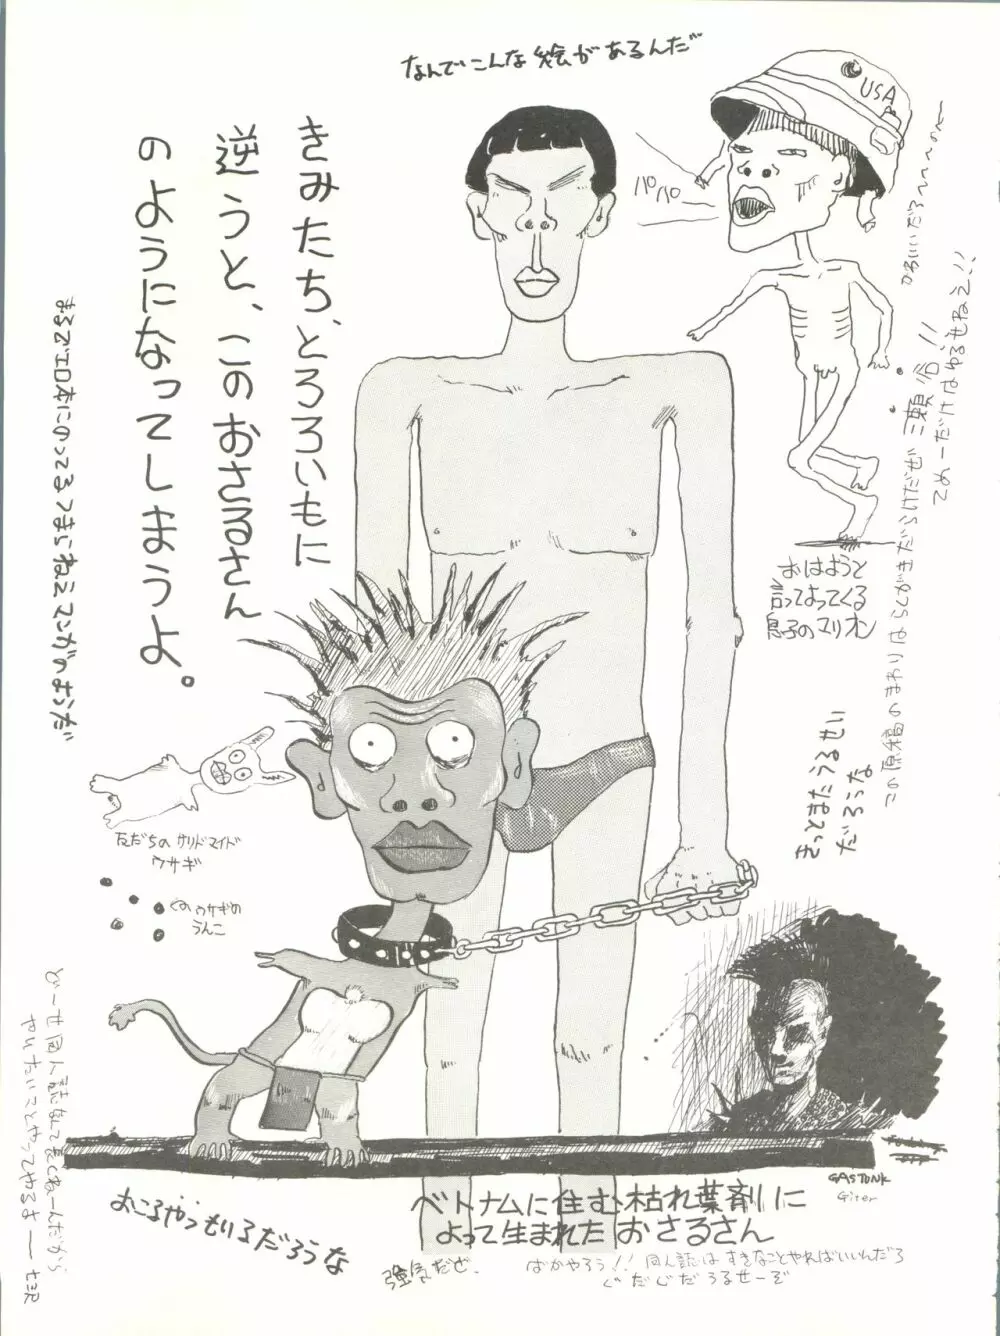 なんでこんな絵があるんだ
USA
パパパ
きみたち、とろろいもに
逆うと、このおさるさん
のようになってしまうよ。
まるでエロ本にのってるつまらねえマンガのようだ
かわいいだろへへへ
てめーだけはゆるせねえ!!
この原稿のまわりはらくがきだらけだぜ 三瀬 !!
おはようと
言ってよってくる
息子のマリオン
きっとまたうるせい
だろうな
友だちのサリドマイド
ウサギ
くのウサギの
うんこ
どーせ同人誌なんてさくねーんだから
やりたいことやってやるさ―
GASTUNK
Giter
おこるやつもいるだろうな
ベトナムに住む枯れ葉剤に
よって生まれたおさるさん
強気だぜ.
ばかやろう!! 同人誌はすきなことやればいいんだろ
ぐだぐだうるせーぞ